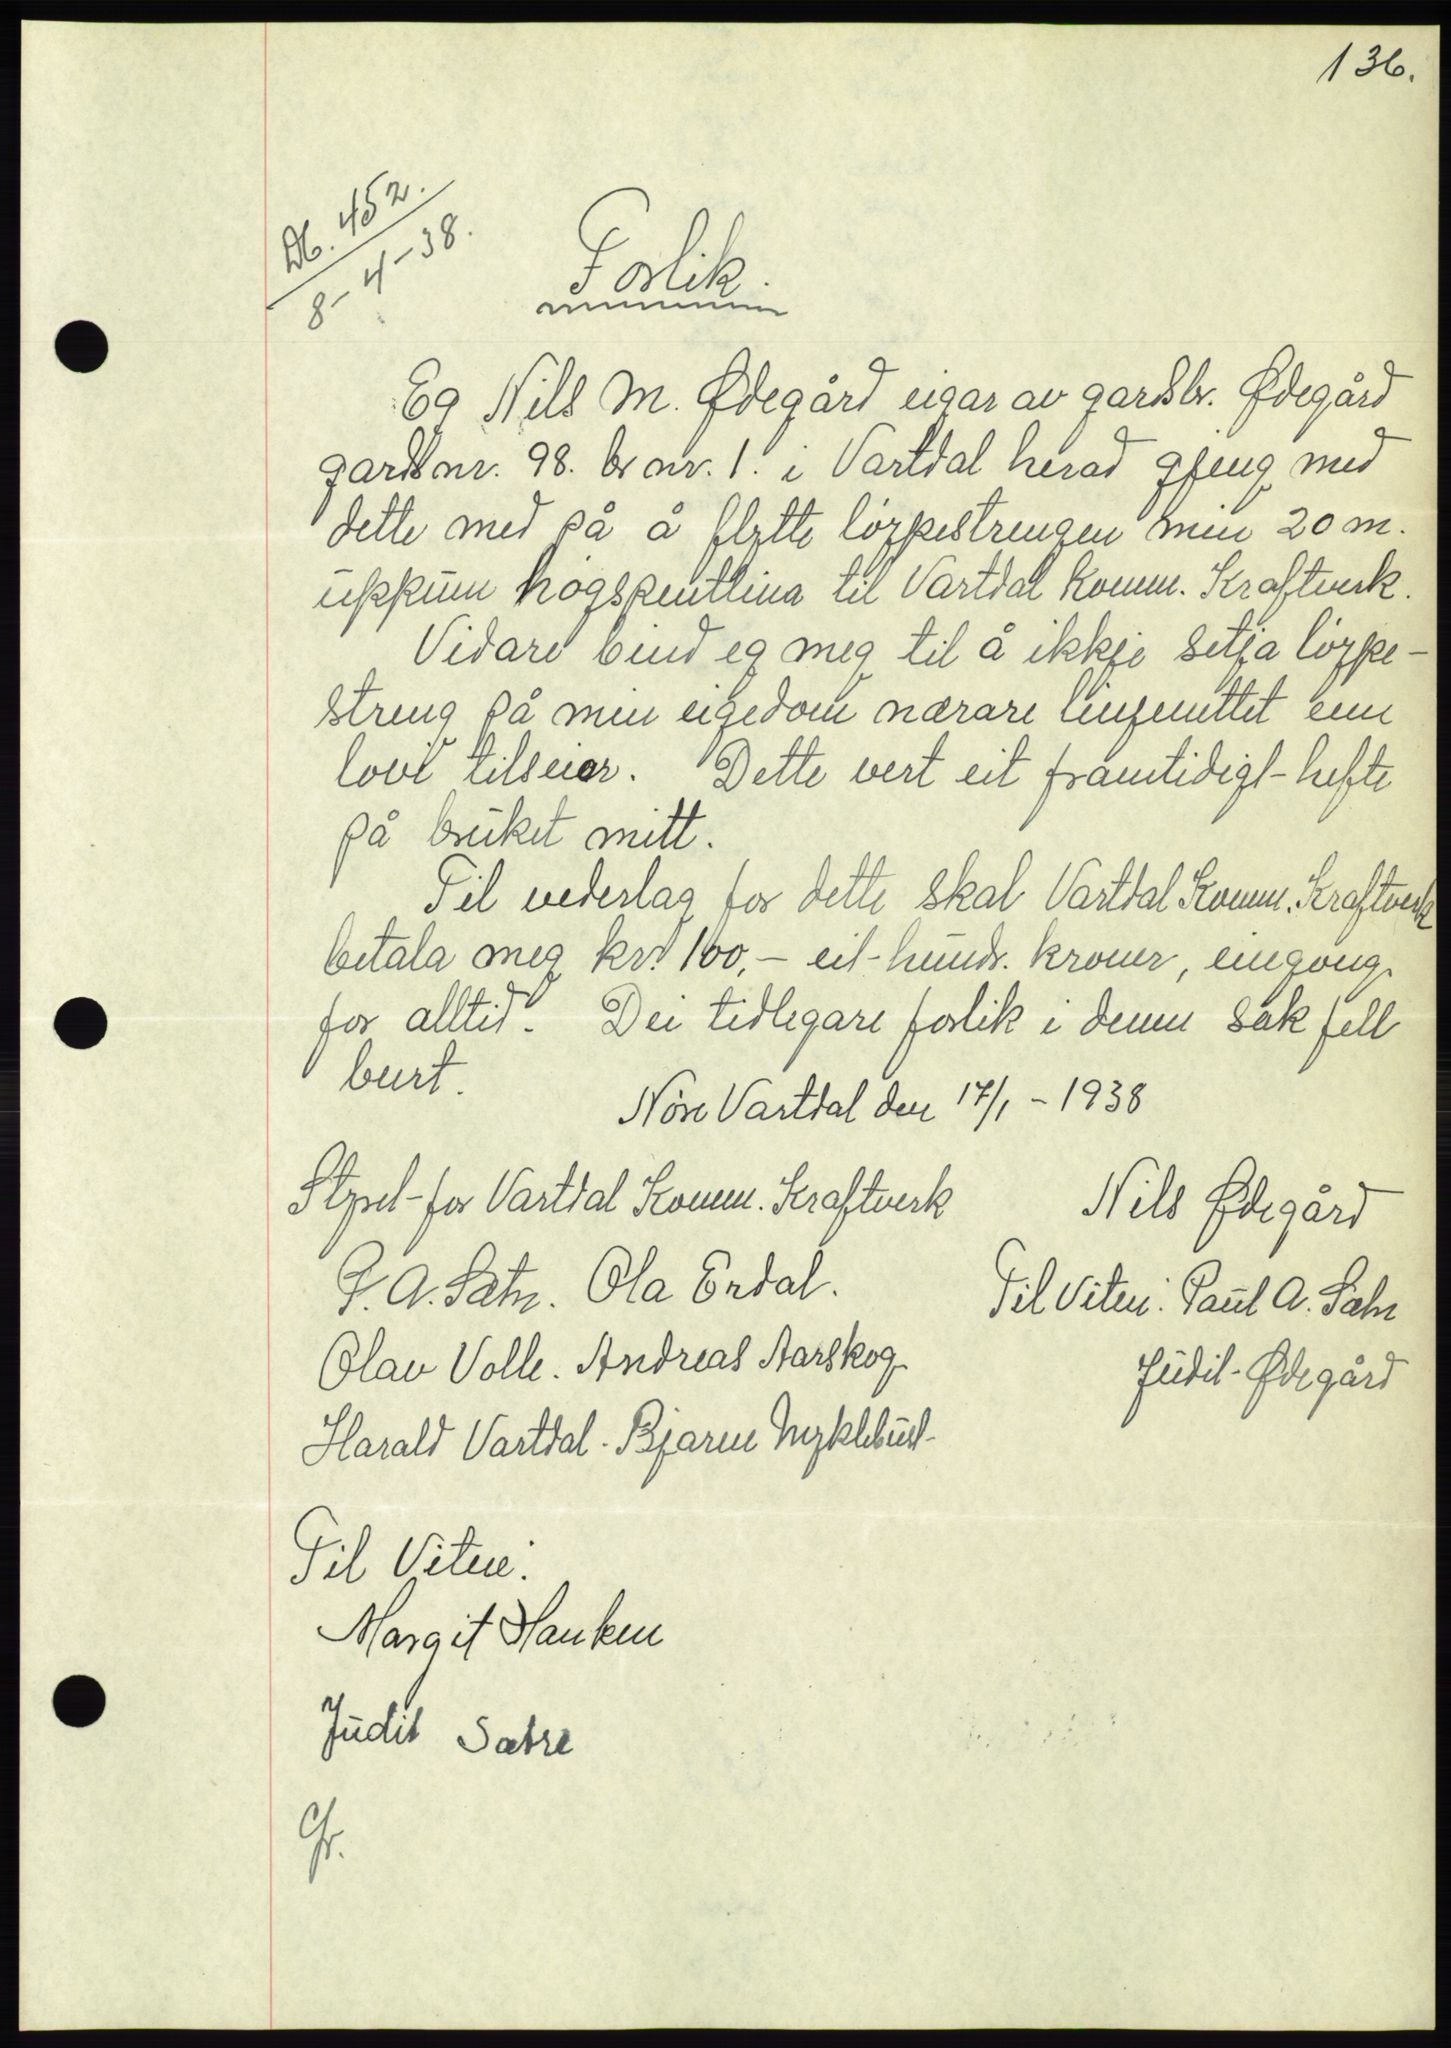 136.
Db. 452.
8-4-38.
Forlik.
Eg Nils M. Ødegård eigar av gardsbr. Ødegård
gardsnr. 98. br nr. 1. i Vartdal herad gjeng med
dette med på å flytte löypestrengen min 20 m.
uppum högspentlina til Vartdal Komm. Kraftverk.
Vidare bind eg meg til å ikkje setja löype-
streng på min eigedom nærare linjenettet enn
lovi tilseier. Dette vert eit framtidigt hefte
på bruket mitt.
Til vederlag for dette skal Vartdal Komm. Kraftverk
betala meg kr. 100,- eit hundr. kroner, eingong
for alltid. Dei tidlegare forlik i denn sak fell
burt.
Nöre Vartdal den 17/1 - 1938
Styret for Vartdal Komm. Kraftverk
Nils Ødegård
P. A. Sætre. Ola Erdal.
Til Vitne: Paul A. Sætre
Olav Volle. Andreas Aarskog
Judit Ødegård
Harald Vartdal. Bjarne Myklebust
Til Vitne:
Margit Hauken
Judit Sætre